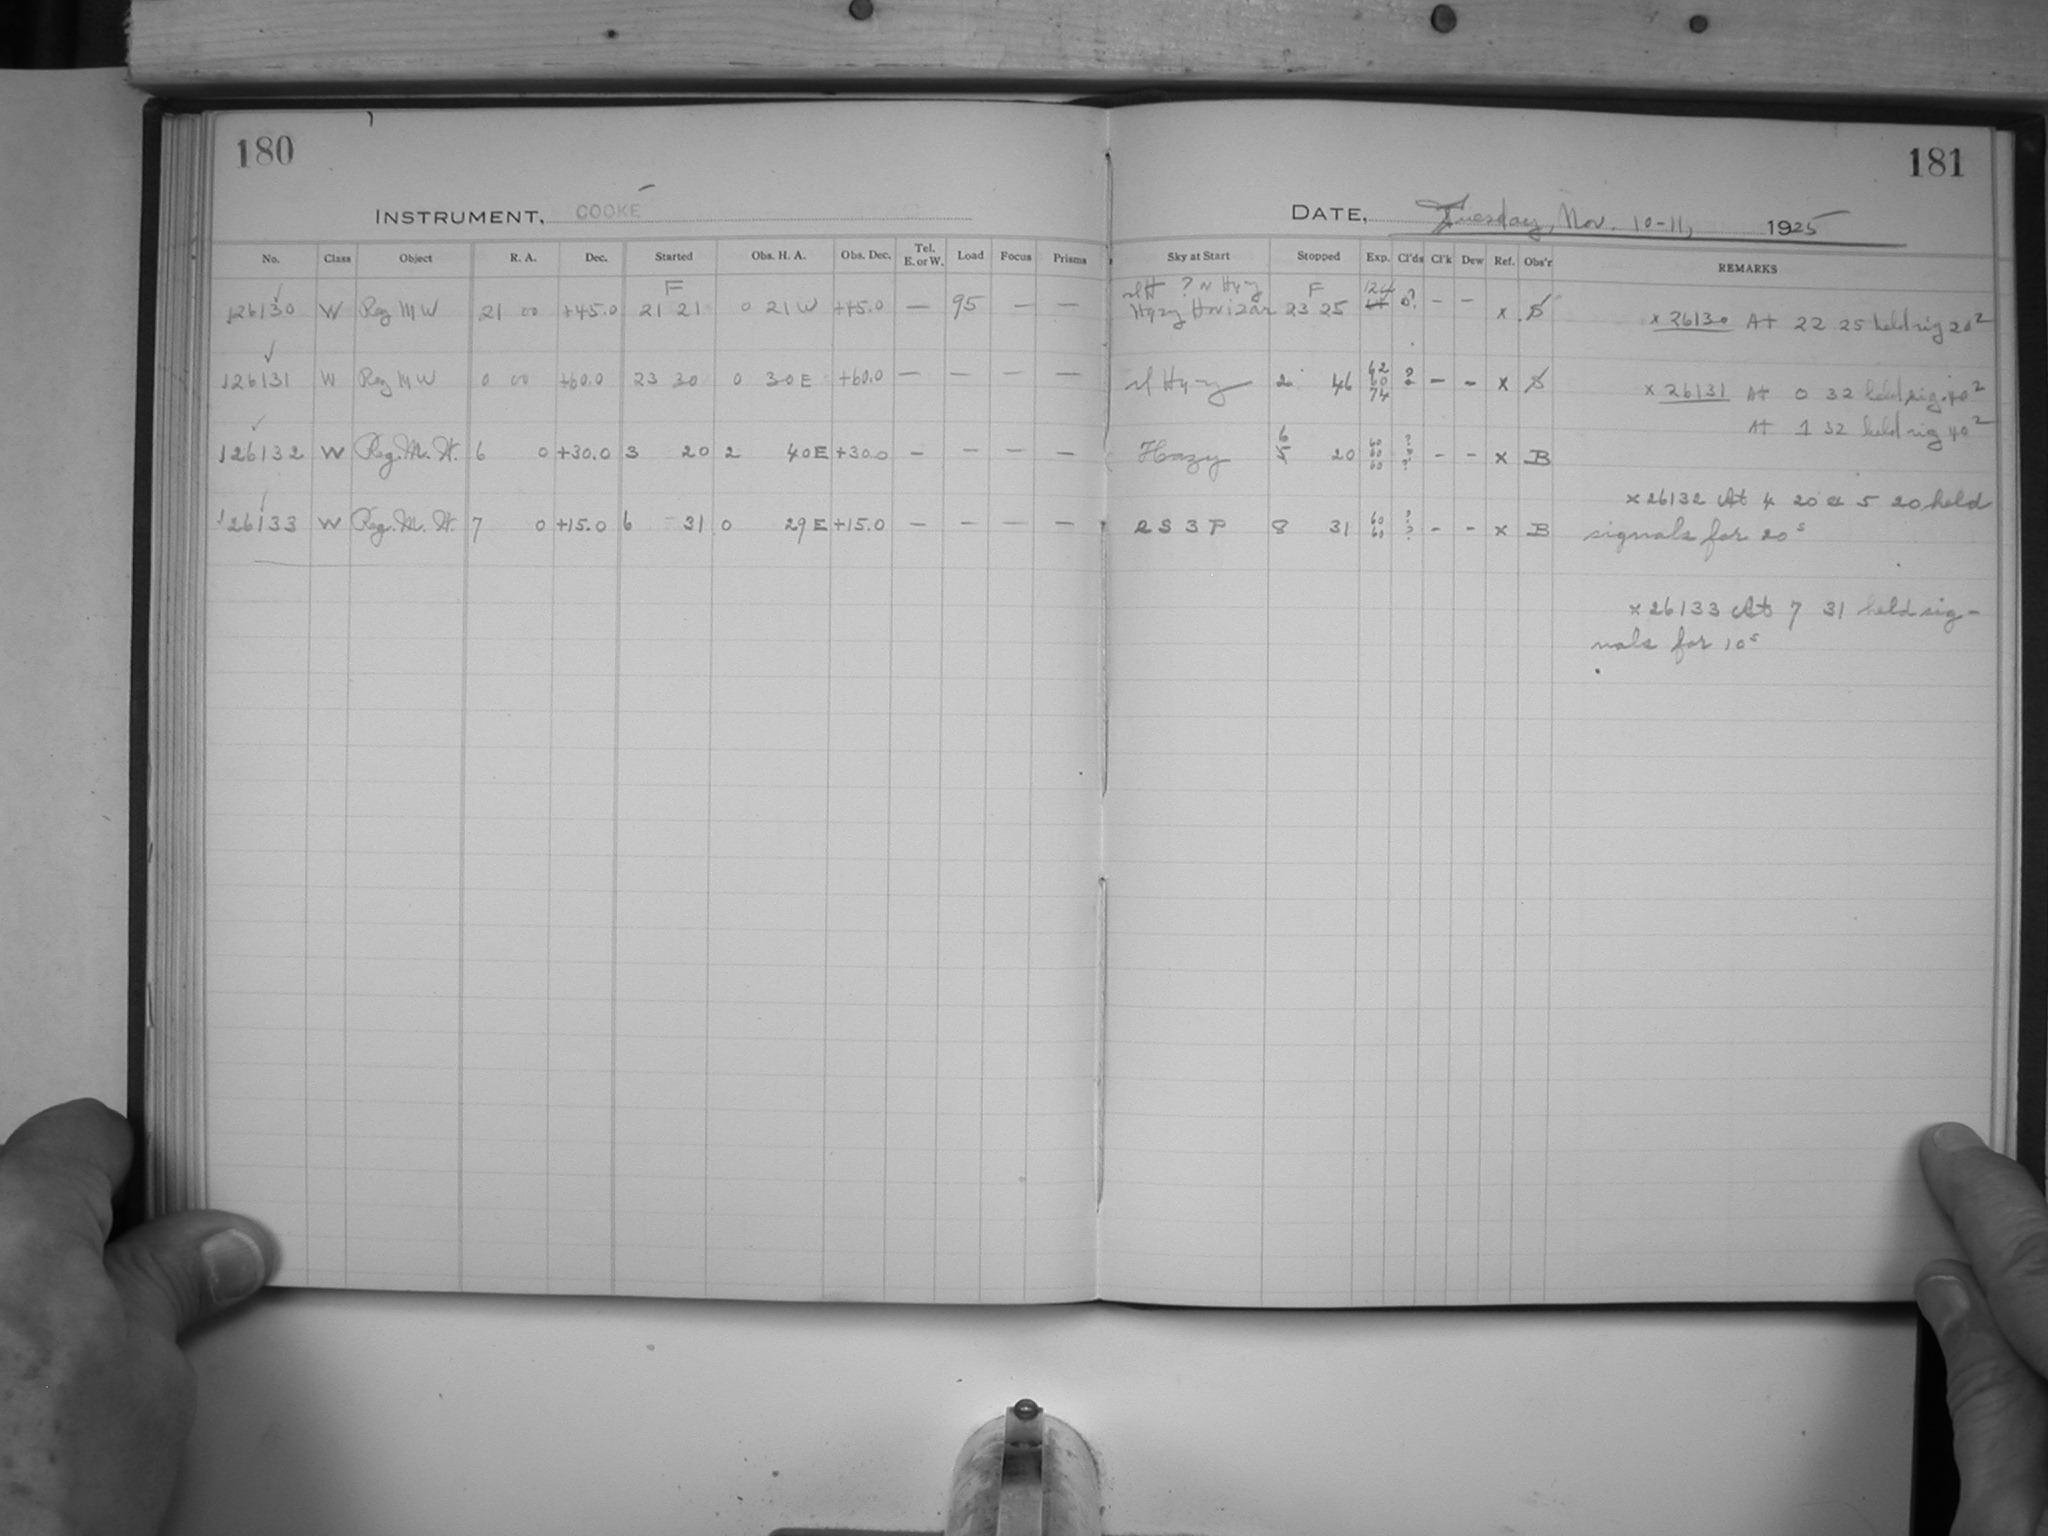 180
INSTRUMENT, COOKE
No. Class Object R. A. Dec. Started Obs. H. A. Obs. Dec. Tel. E. or W. Load Focus Prisms
F
126130 W Reg MW 21 00 +45.0 21 21 0 21 W +45.0 — 95 — —
126131 W Reg MW 0 00 +60.0 23 30 0 30 E +60.0 — — — —
126132 W Reg. M. W. 6 0 +30.0 3 20 2 40 E +30.0 - - - -
126133 W Reg. M. W. 7 0 +15.0 6 31 0 29 E +15.0 - - - -
181
DATE, Tuesday, Nov. 10-11, 1925
Sky at Start Stopped Exp. Cl'ds Cl'k Dew Ref. Obs'r REMARKS
? Hazy F 124
Hazy Horizon 23 25 ? - - x
x 26130 At 22 25 held sig 20
Hazy 2 46 62 60 74 ? - - x
x 26131 At 0 32 held sig. 40
At 1 32 held sig 40
Hazy 6 20 60 60 60 ? ? ? - - x B
x 26132 At 4 20 & 5 20 held
signals for 20s
2 S 3 P 8 31 60 60 ? ? - - x B
x 26133 At 7 31 held sig-
nals for 10s